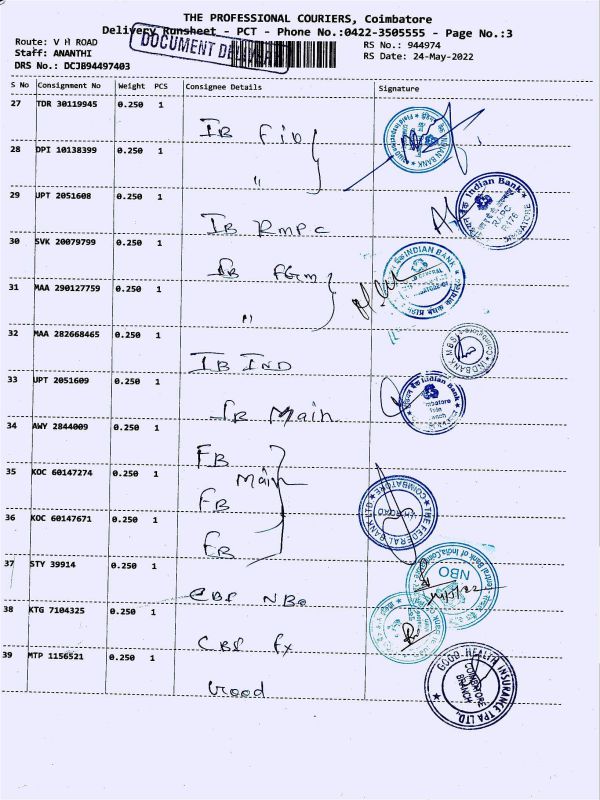 THE PROFESSIONAL COURIERS, Coimbatore
Delivery Runsheet - PCT - Phone No.:0422-3505555 - Page No.:3
Route: V H ROAD
RS No.: 944974
Staff: ANANTHI
RS Date: 24-May-2022
DRS No.: DCJB94497403
DOCUMENT
S No Consignment No Weight PCS Consignee Details Signature
27 TDR 30119945 0.250 1
IB
28 DPI 10138399 0.250 1
"
29 UPT 2051608 0.250 1
Indian Bank
IB RMPC
30 SVK 20079799 0.250 1
INDIAN BANK
IB FGM
31 MAA 290127759 0.250 1
"
32 MAA 282668465 0.250 1
IB IND
33 UPT 2051609 0.250 1
Indian Bank
IB Main
34 AWY 2844009 0.250 1
FB
Main
35 KOC 60147274 0.250 1
FB
THE FEDERAL BANK LTD COIMBATORE
36 KOC 60147671 0.250 1
FB
37 STY 39914 0.250 1
Central Bank of India
NBO
CBI NBO
38 KTG 7104325 0.250 1
CBI Fx
39 MTP 1156521 0.250 1
GOOD HEALTH INSURANCE TPA LTD.
COIMBATORE BRANCH
Good